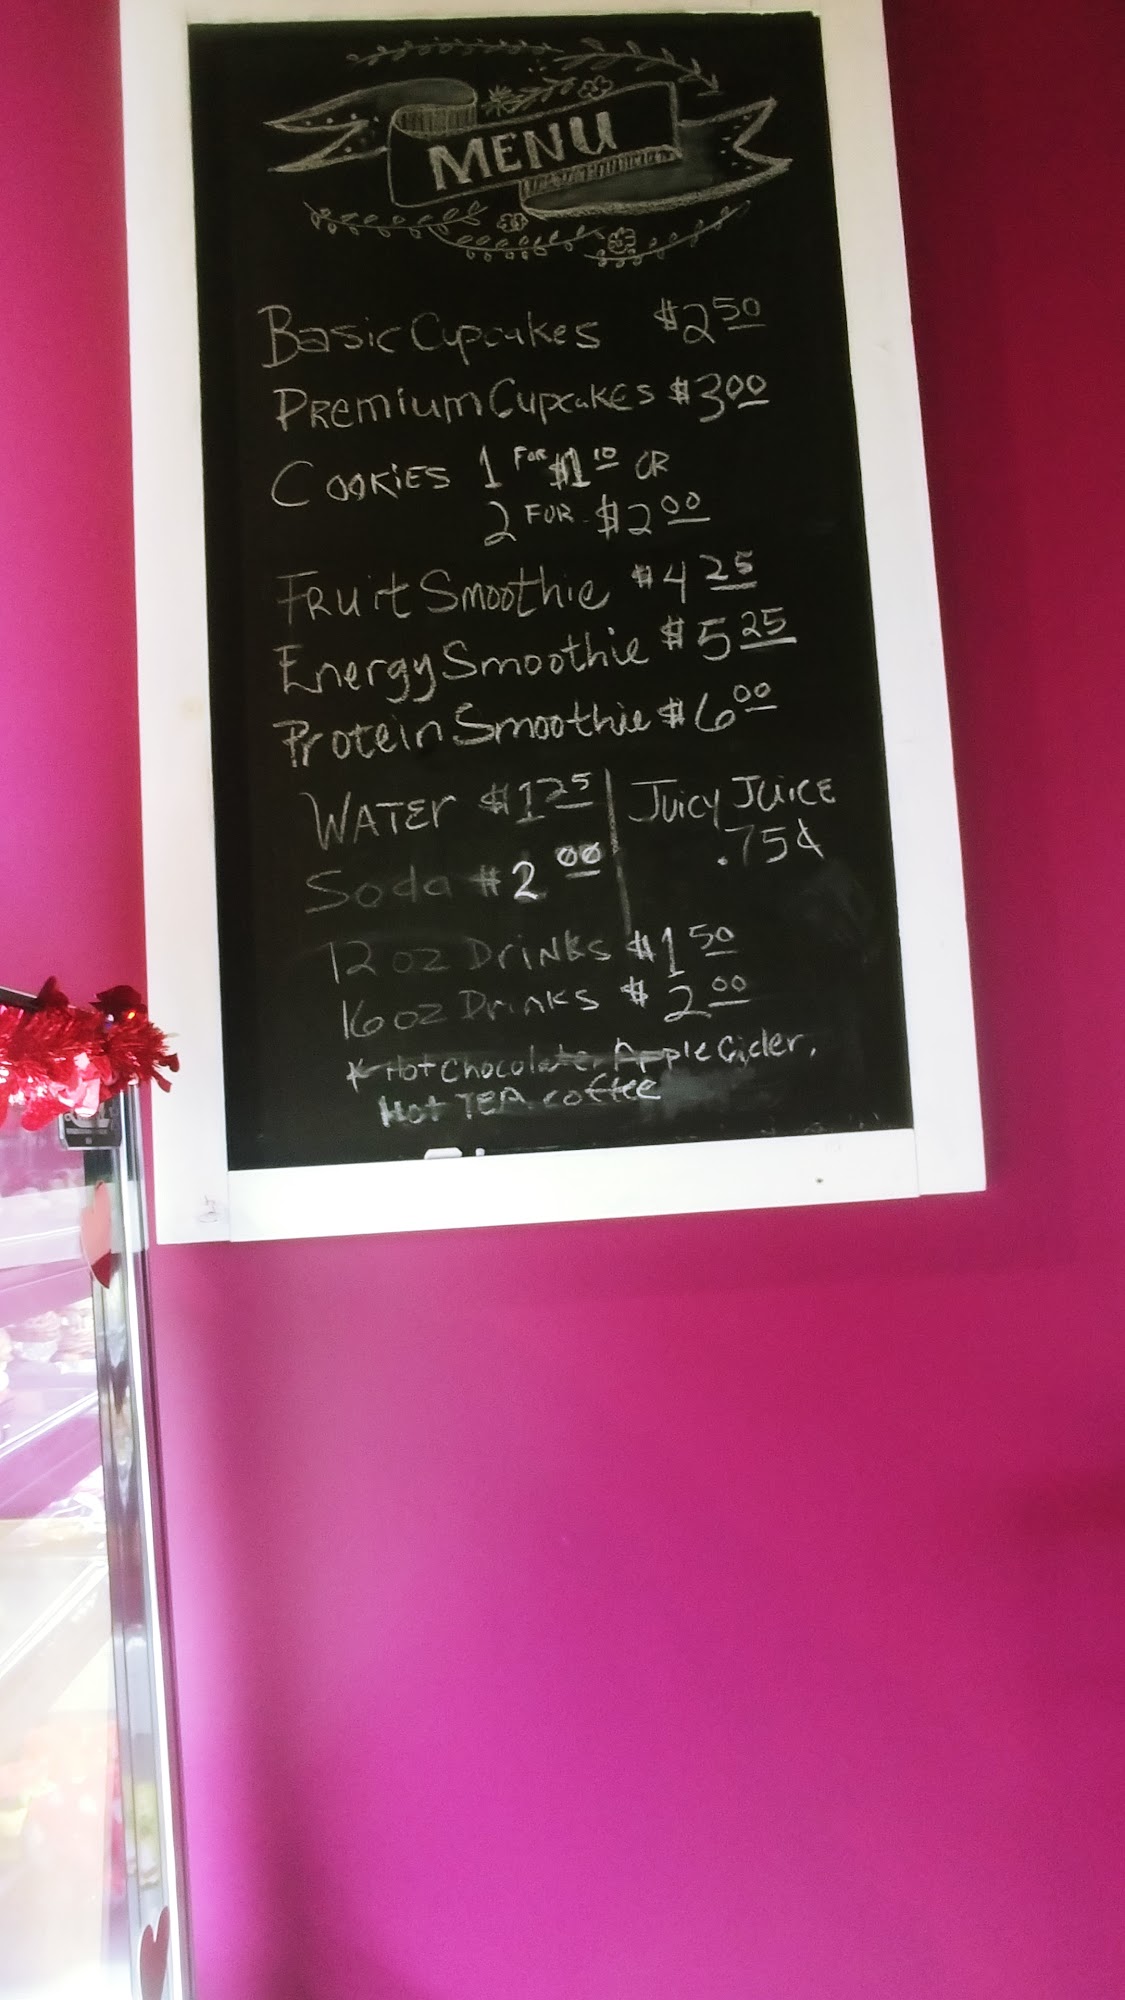 MENU
Basic Cupcakes $2.50
Premium Cupcakes $3.00
Cookies 1 for $1.10 or
2 for $2.00
Fruit Smoothie $4.25
Energy Smoothie $5.25
Protein Smoothie $6.00
Water $1.25
Juicy Juice
.75¢
Soda $2.00
12 oz Drinks $1.50
16 oz Drinks $2.00
* Hot Chocolate, Apple Cider,
Hot TEA, coffee